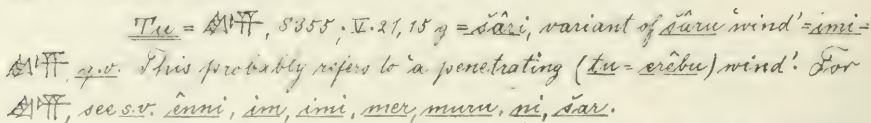 Tu = 𒅎, 8355; V. 21, 15 g = šâri, variant of šâru 'wind' = imi =
𒅎 q.v. This probably refers to 'a penetrating (tu = erêbu) wind'. For
𒅎, see s.v. ênni, im, imi, mer, muru, ni, šar.